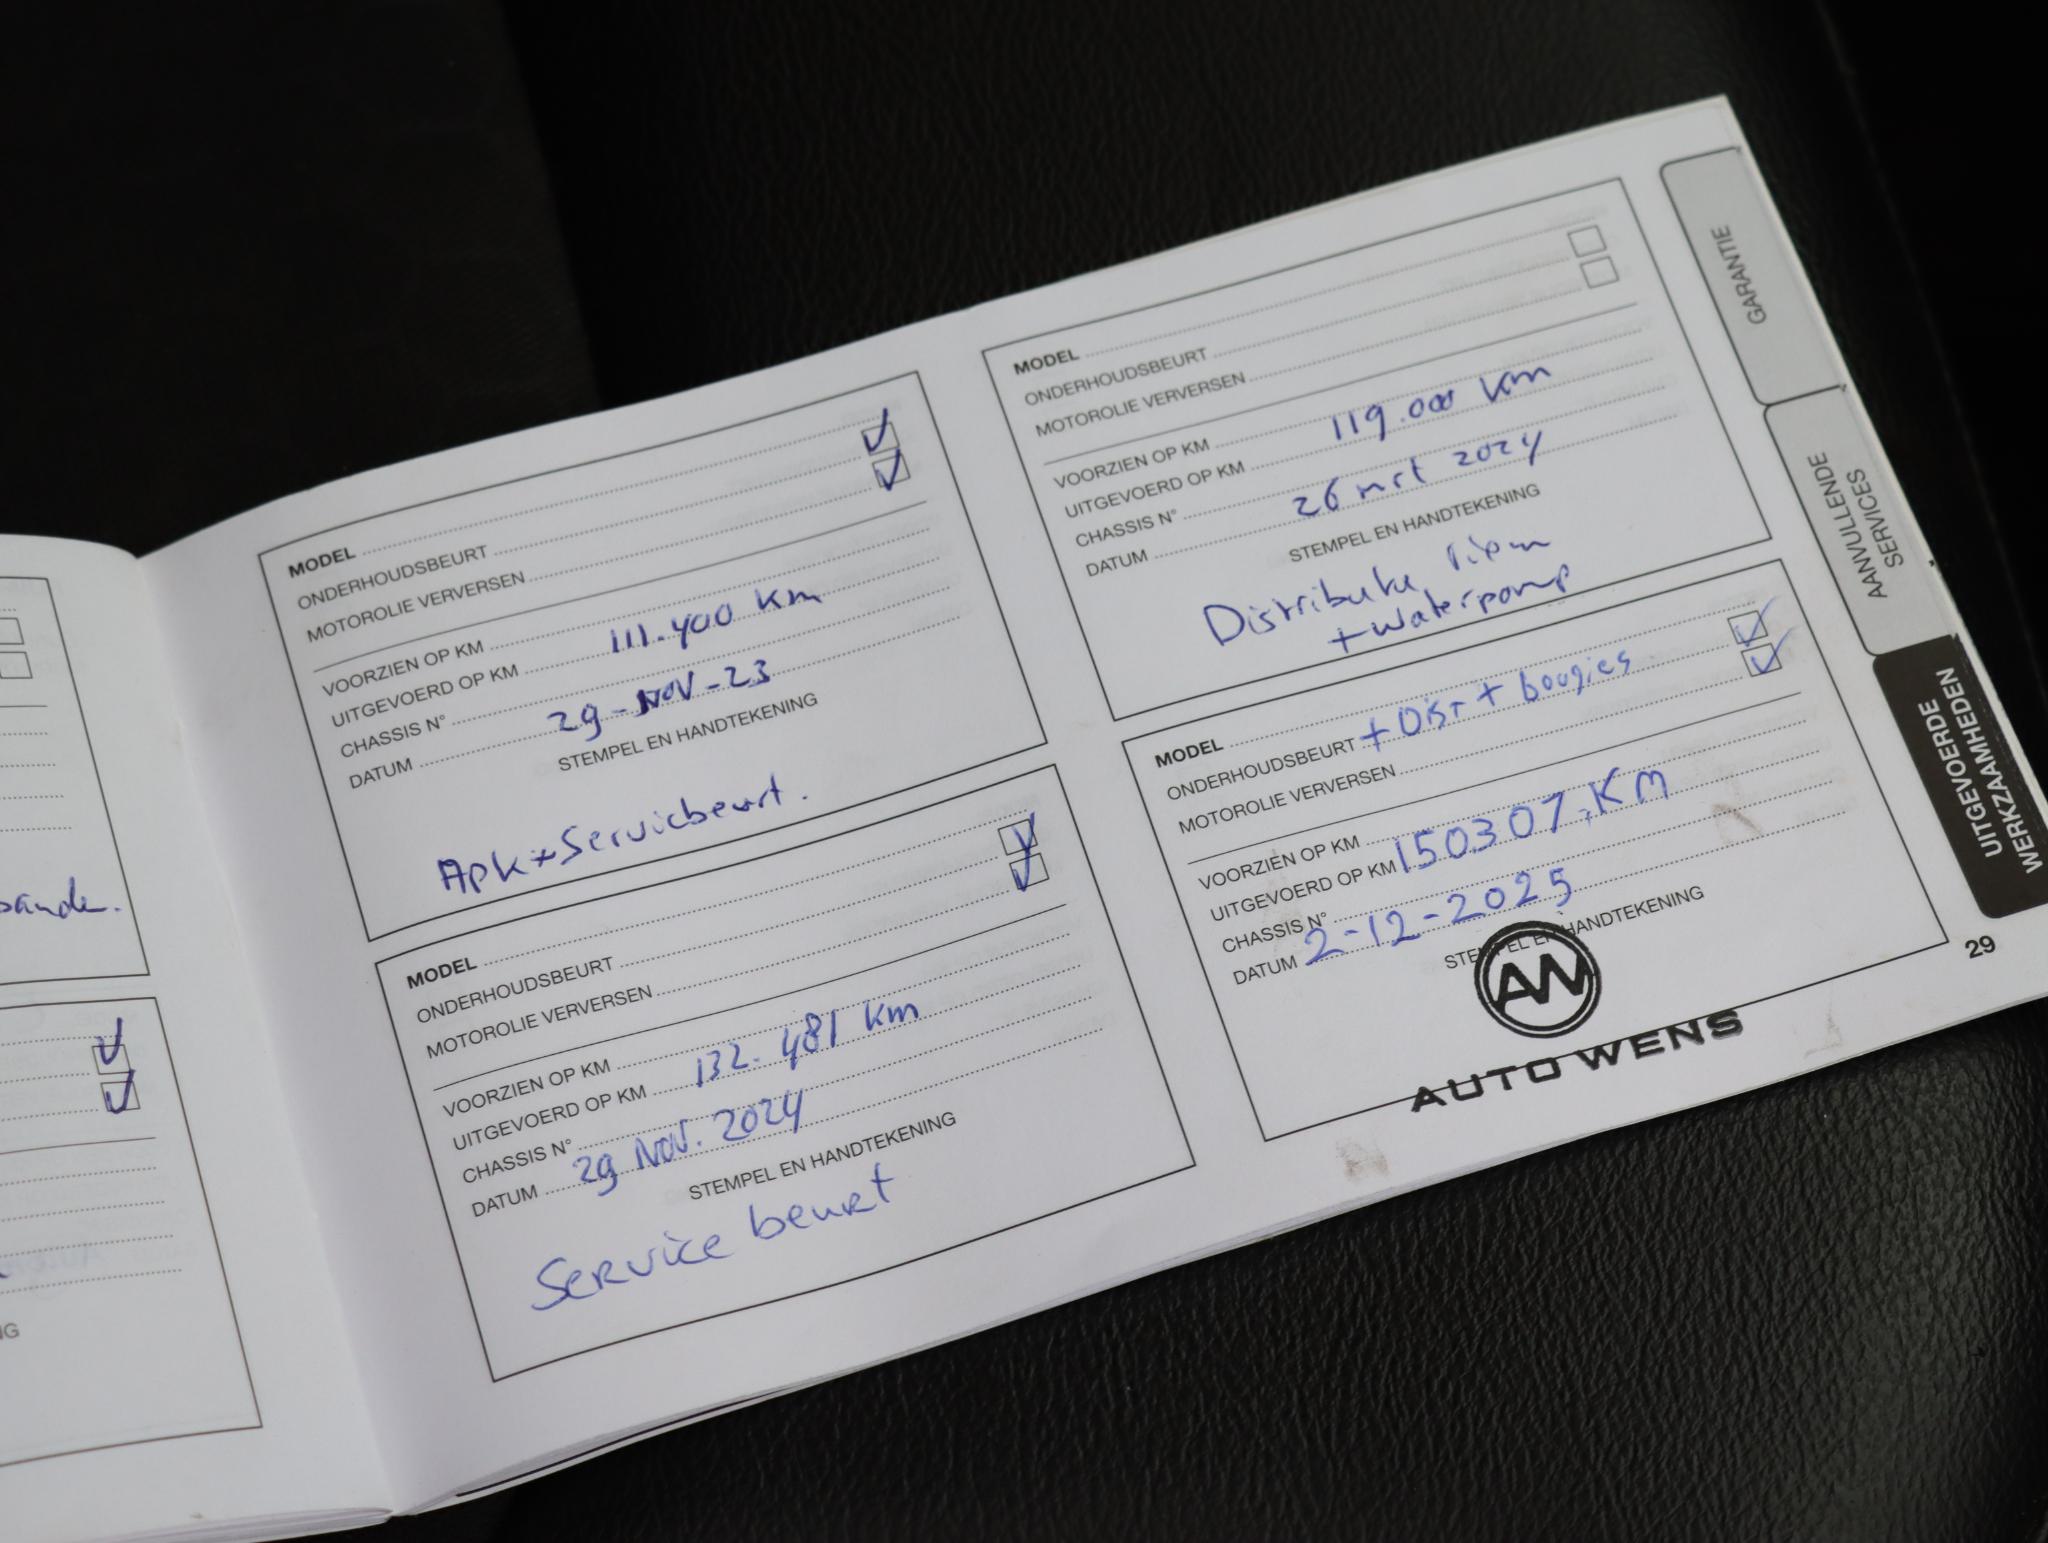 bande.
NG
MODEL
ONDERHOUDSBEURT
MOTOROLIE VERVERSEN
VOORZIEN OP KM
UITGEVOERD OP KM 111.400 km
CHASSIS N°
DATUM 29-NOV-23
STEMPEL EN HANDTEKENING
APK + Servicbeurt.
MODEL
ONDERHOUDSBEURT
MOTOROLIE VERVERSEN
VOORZIEN OP KM
UITGEVOERD OP KM 132.481 km
CHASSIS N°
DATUM 29 NOV. 2024
STEMPEL EN HANDTEKENING
Service beurt
MODEL
ONDERHOUDSBEURT
MOTOROLIE VERVERSEN
VOORZIEN OP KM
UITGEVOERD OP KM 119.000 km
CHASSIS N°
DATUM 26 mrt 2024
STEMPEL EN HANDTEKENING
Distributie riem
+ waterpomp
MODEL
ONDERHOUDSBEURT + Dist + bougies
MOTOROLIE VERVERSEN
VOORZIEN OP KM
UITGEVOERD OP KM 150307, KM
CHASSIS N°
DATUM 2-12-2025
STEMPEL EN HANDTEKENING
AW
AUTO WENS
GARANTIE
AANVULLENDE
SERVICES
UITGEVOERDE
WERKZAAMHEDEN
29